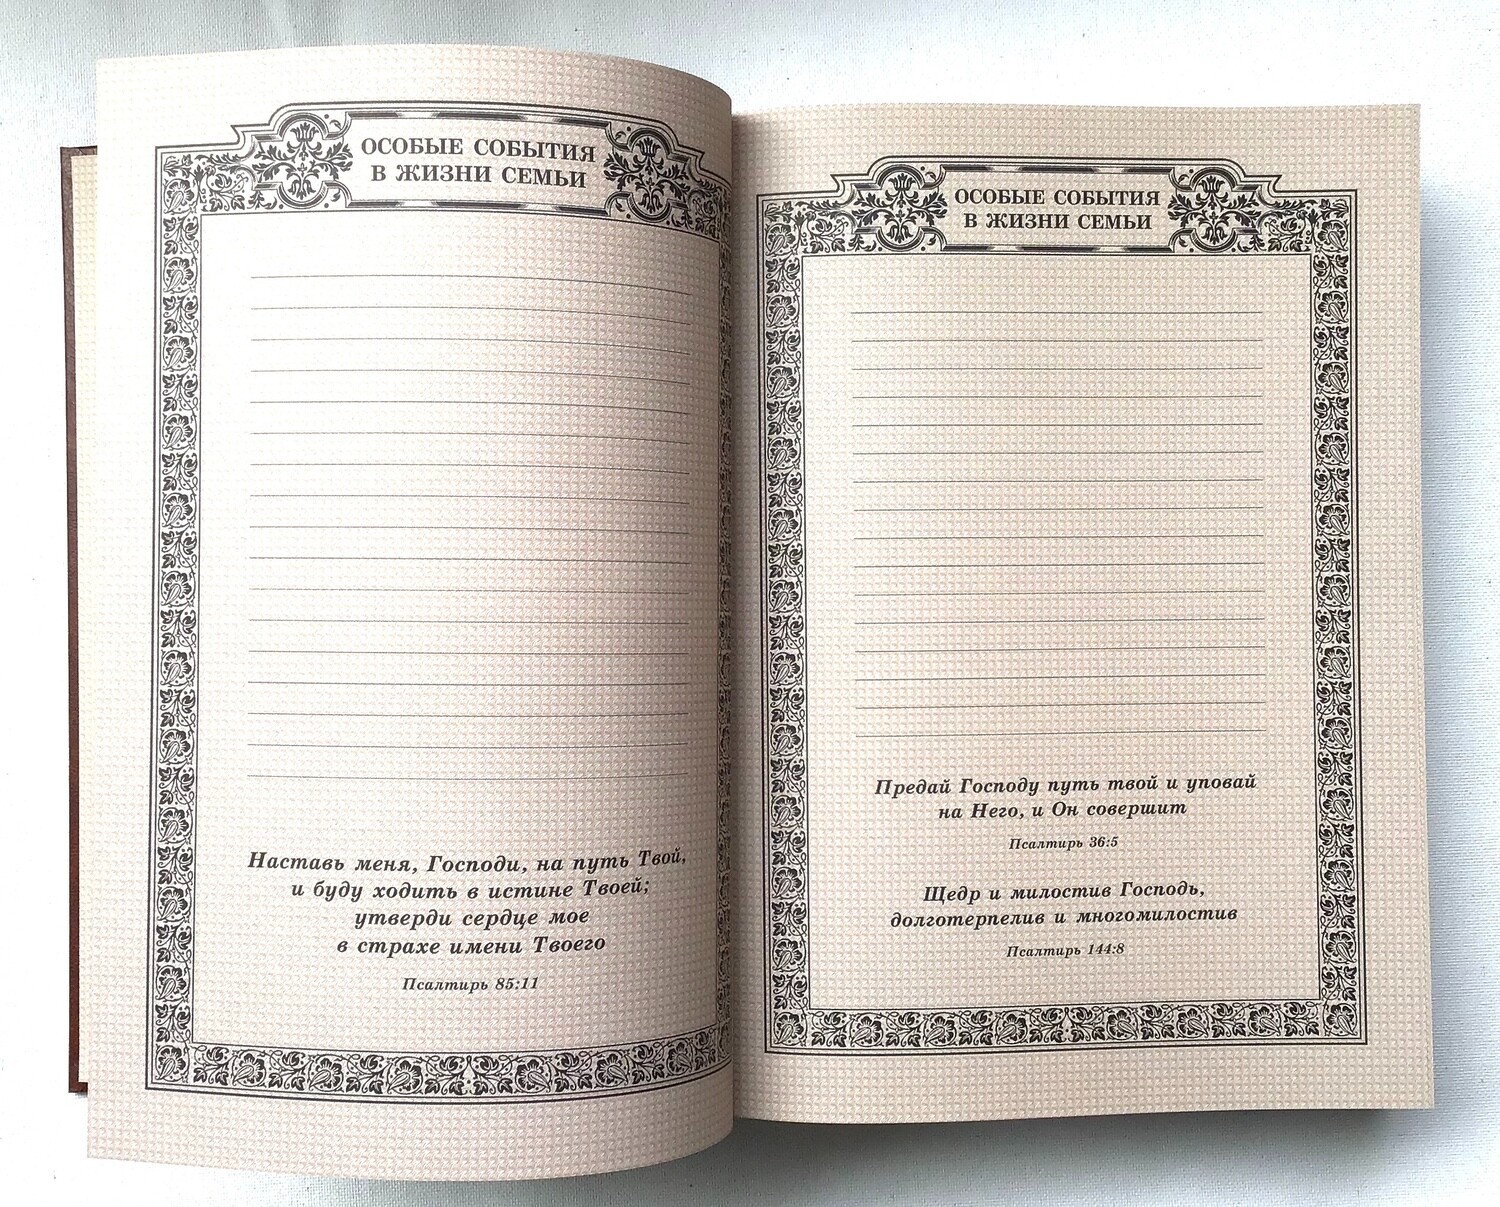 ОСОБЫЕ СОБЫТИЯ
В ЖИЗНИ СЕМЬИ
Наставь меня, Господи, на путь Твой,
и буду ходить в истине Твоей;
утверди сердце мое
в страхе имени Твоего
Псалтирь 85:11
ОСОБЫЕ СОБЫТИЯ
В ЖИЗНИ СЕМЬИ
Предай Господу путь твой и уповай
на Него, и Он совершит
Псалтирь 36:5
Щедр и милостив Господь,
долготерпелив и многомилостив
Псалтирь 144:8